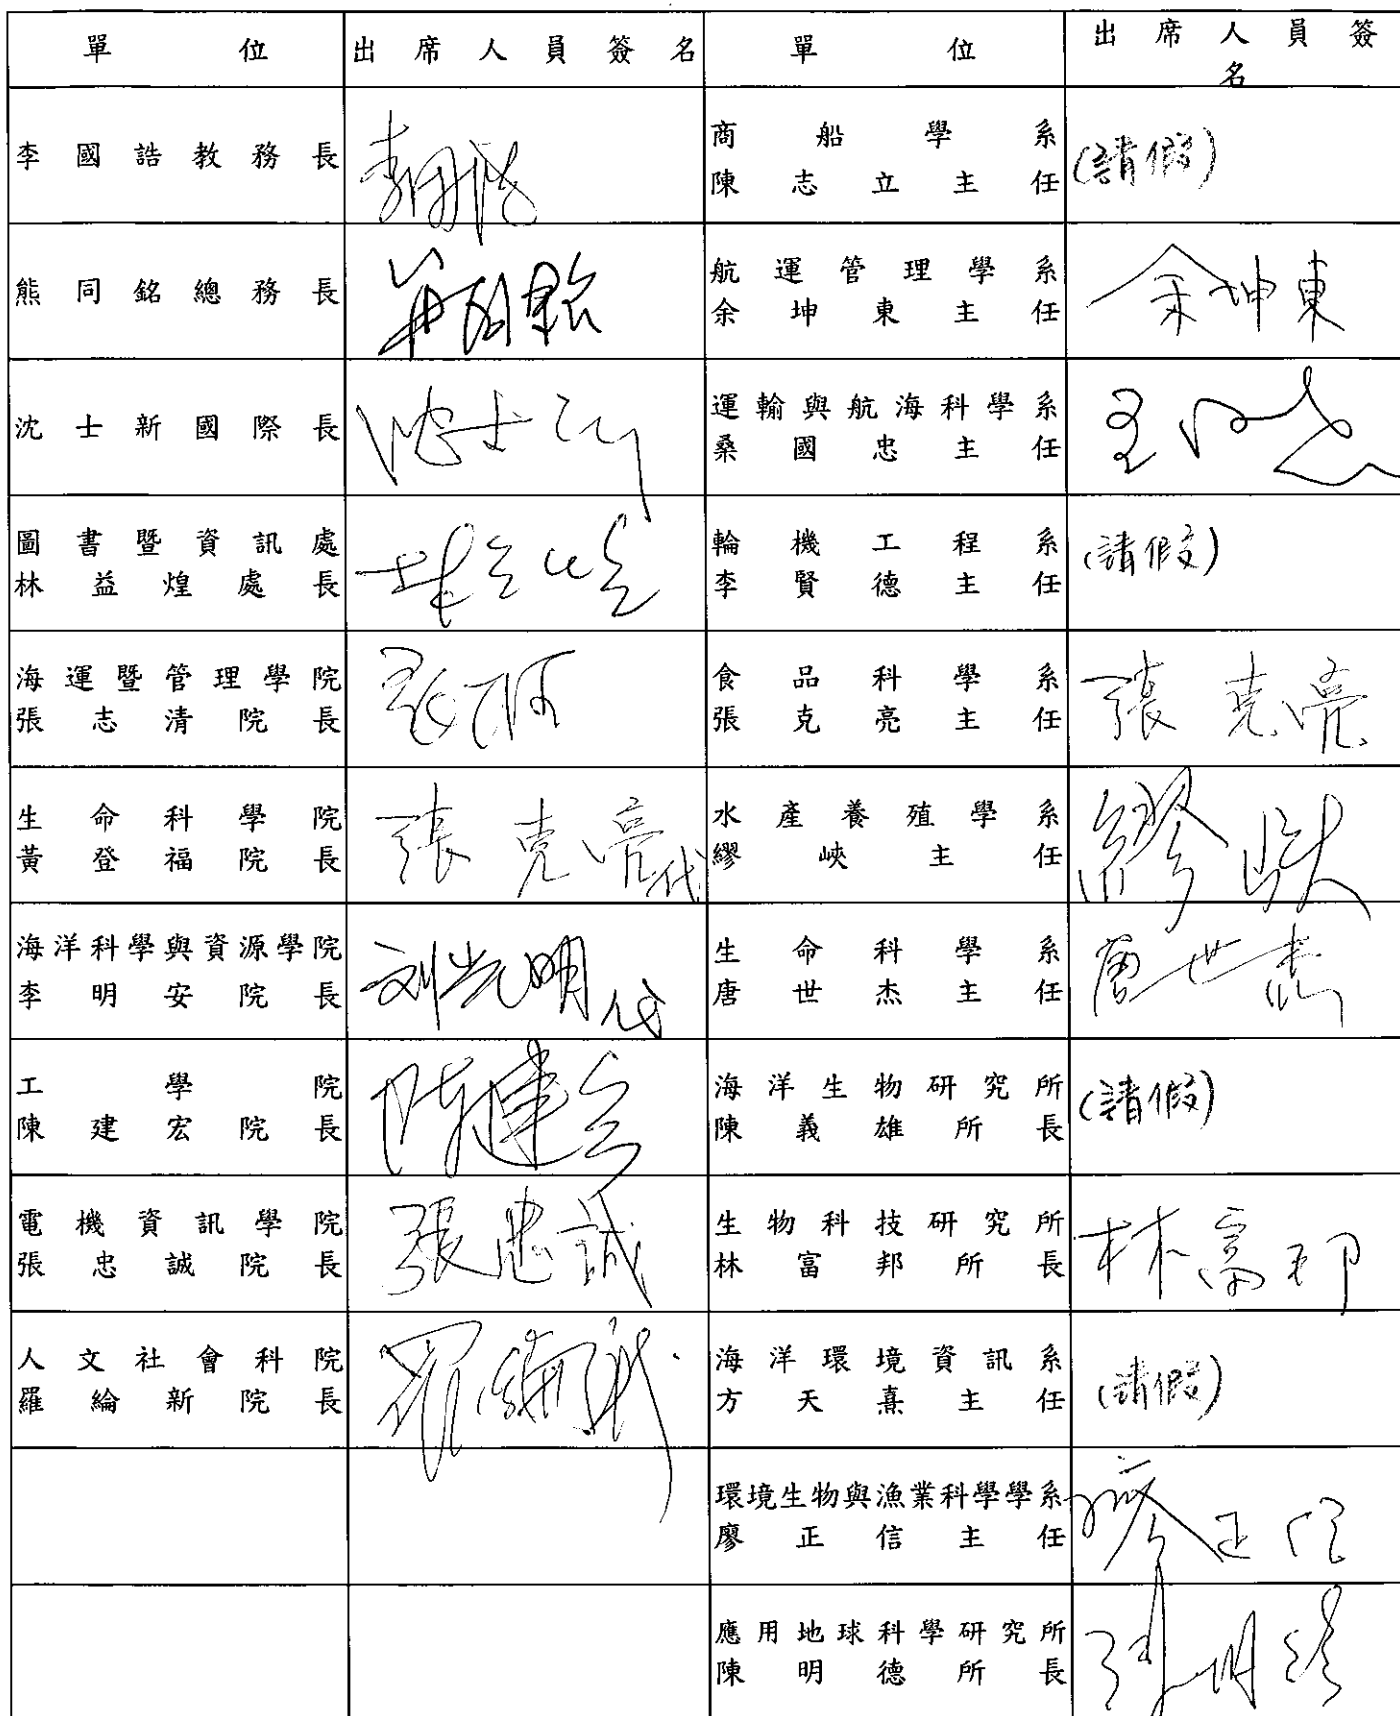 單位 出席人員簽名 單位 出席人員簽
名
李國誥教務長
商船學系
陳志立主任
(請假)
熊同銘總務長
航運管理學系
余坤東主任
余坤東
沈士新國際長
沈士新
運輸與航海科學系
桑國忠主任
圖書暨資訊處
林益煌處長
輪機工程系
李賢德主任
(請假)
海運暨管理學院
張志清院長
食品科學系
張克亮主任
張克亮
生命科學院
黃登福院長
張克亮代
水產養殖學系
繆峽主任
繆峽
海洋科學與資源學院
李明安院長
刘光明代
生命科學系
唐世杰主任
唐世杰
工學院
陳建宏院長
陳建宏
海洋生物研究所
陳義雄所長
(請假)
電機資訊學院
張忠誠院長
張忠誠
生物科技研究所
林富邦所長
林富邦
人文社會科院
羅綸新院長
羅綸新
海洋環境資訊系
方天熹主任
(請假)
環境生物與漁業科學學系
廖正信主任
廖正信
應用地球科學研究所
陳明德所長
陳明德